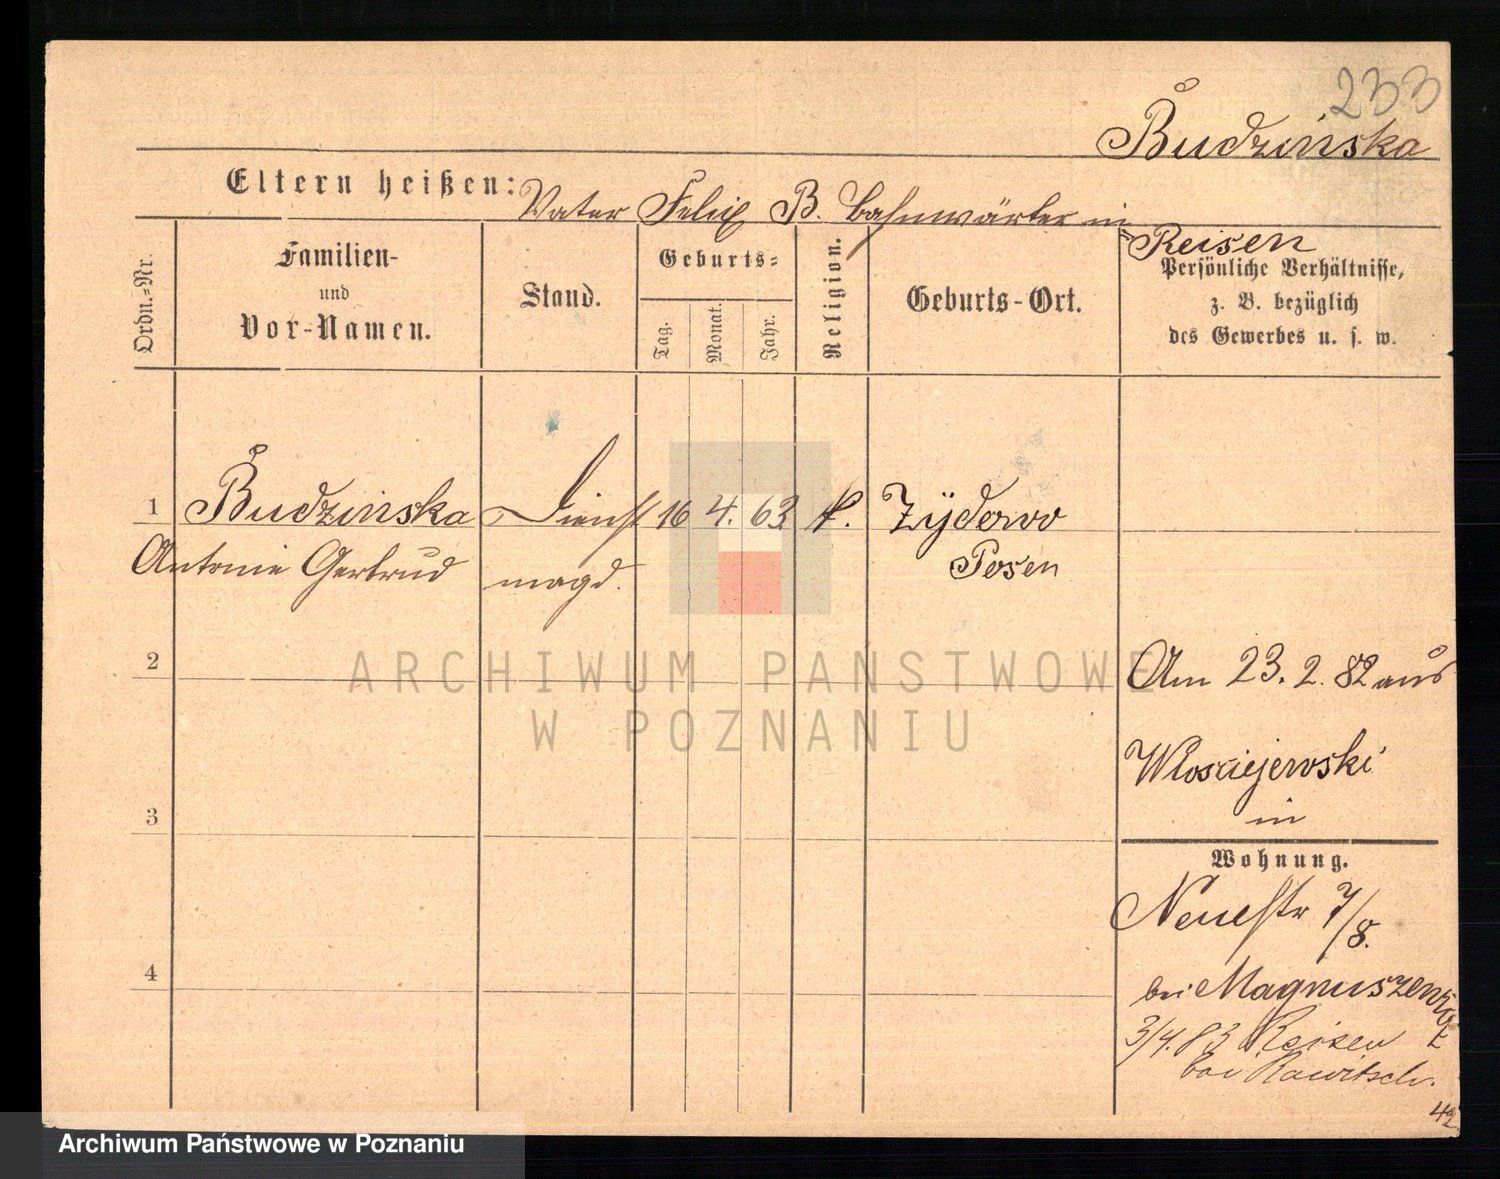 233
Budzinska
Eltern heißen: Vater Felix B. Bahnwärter in
Reisen
Ordn.-Nr.
Familien-
und
Vor-Namen.
Stand.
Geburts-
Tag.
Monat.
Jahr.
Religion.
Geburts-Ort.
Persönliche Verhältnisse,
z. B. bezüglich
des Gewerbes u. s. w.
1 Budzinska Dienst 16 4. 63 k. Zÿdowo
Antonie Gertrud magd. Posen
2
Am 23. 2. 82 aus
Wlosciejewski
in
3
Wohnung.
Neuestr 7/8.
4
bei Magnuszewicz
3/4.83 Reisen
bei Rawitsch.
42
ARCHIWUM PAŃSTWOWE
W POZNANIU
Archiwum Państwowe w Poznaniu